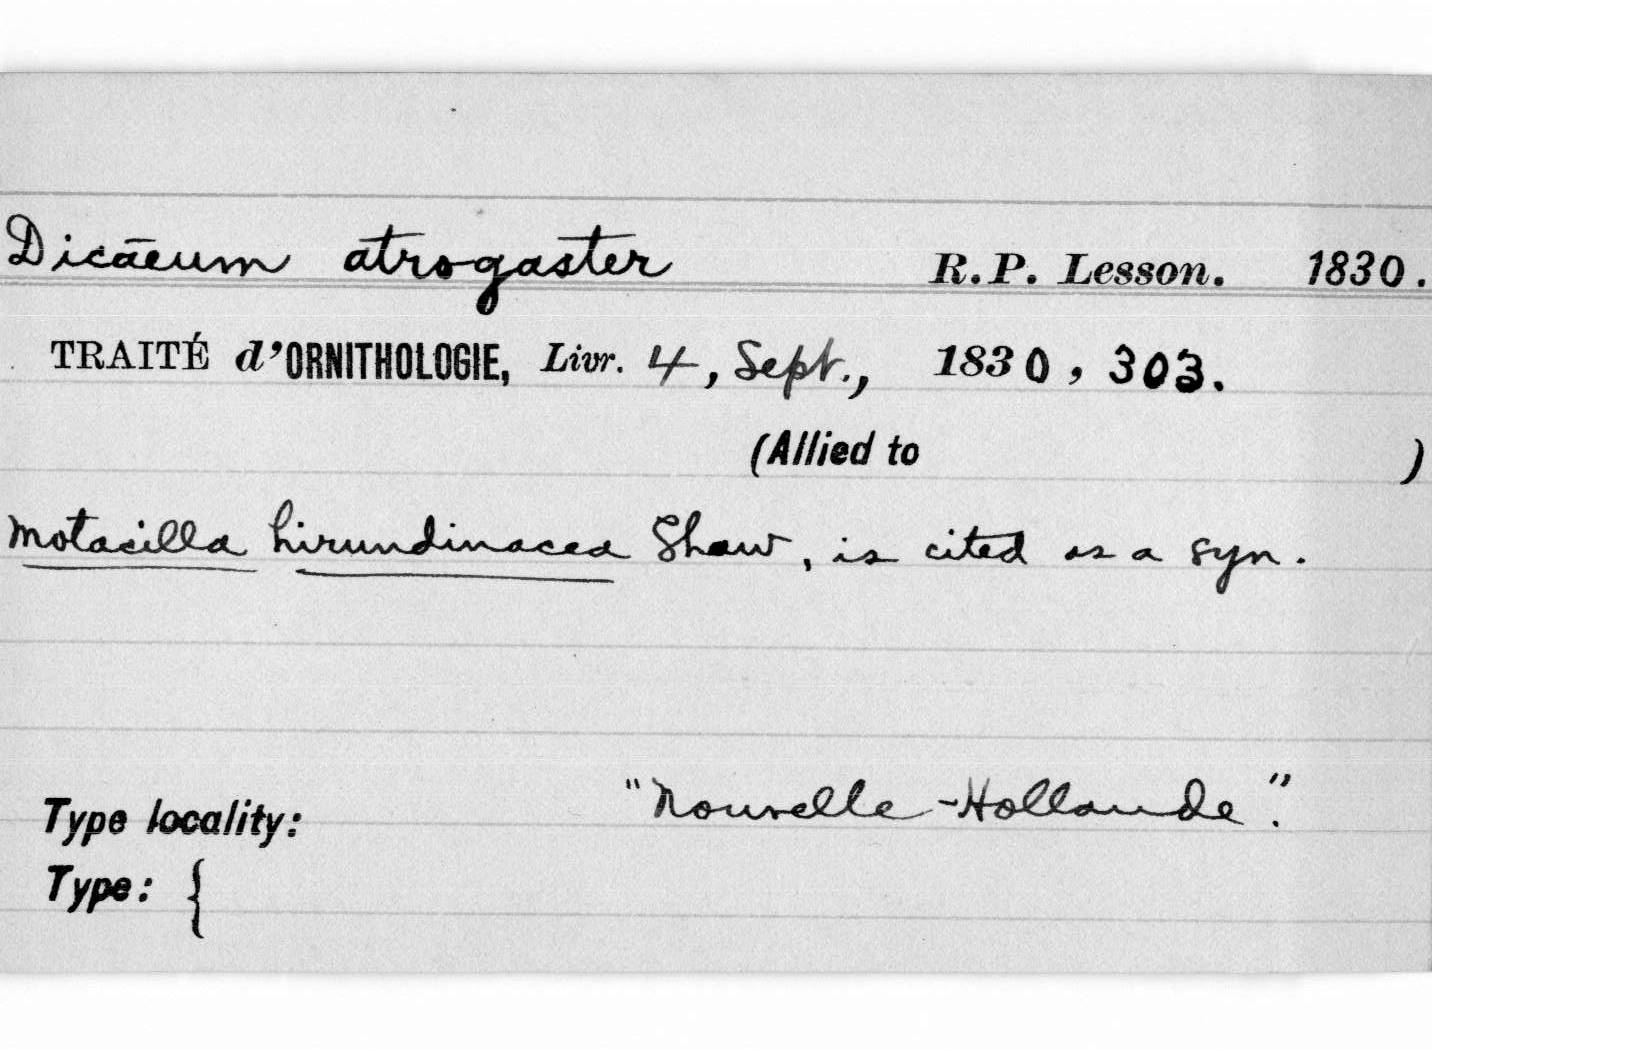 Dicaeum atrogaster R.P. Lesson. 1830.
TRAITÉ d'ORNITHOLOGIE, Livr. 4, Sept., 1830, 303.
(Allied to )
Motacilla hirundinacea Shaw, is cited as a syn.
Type locality: "Nouvelle-Hollande".
Type: {